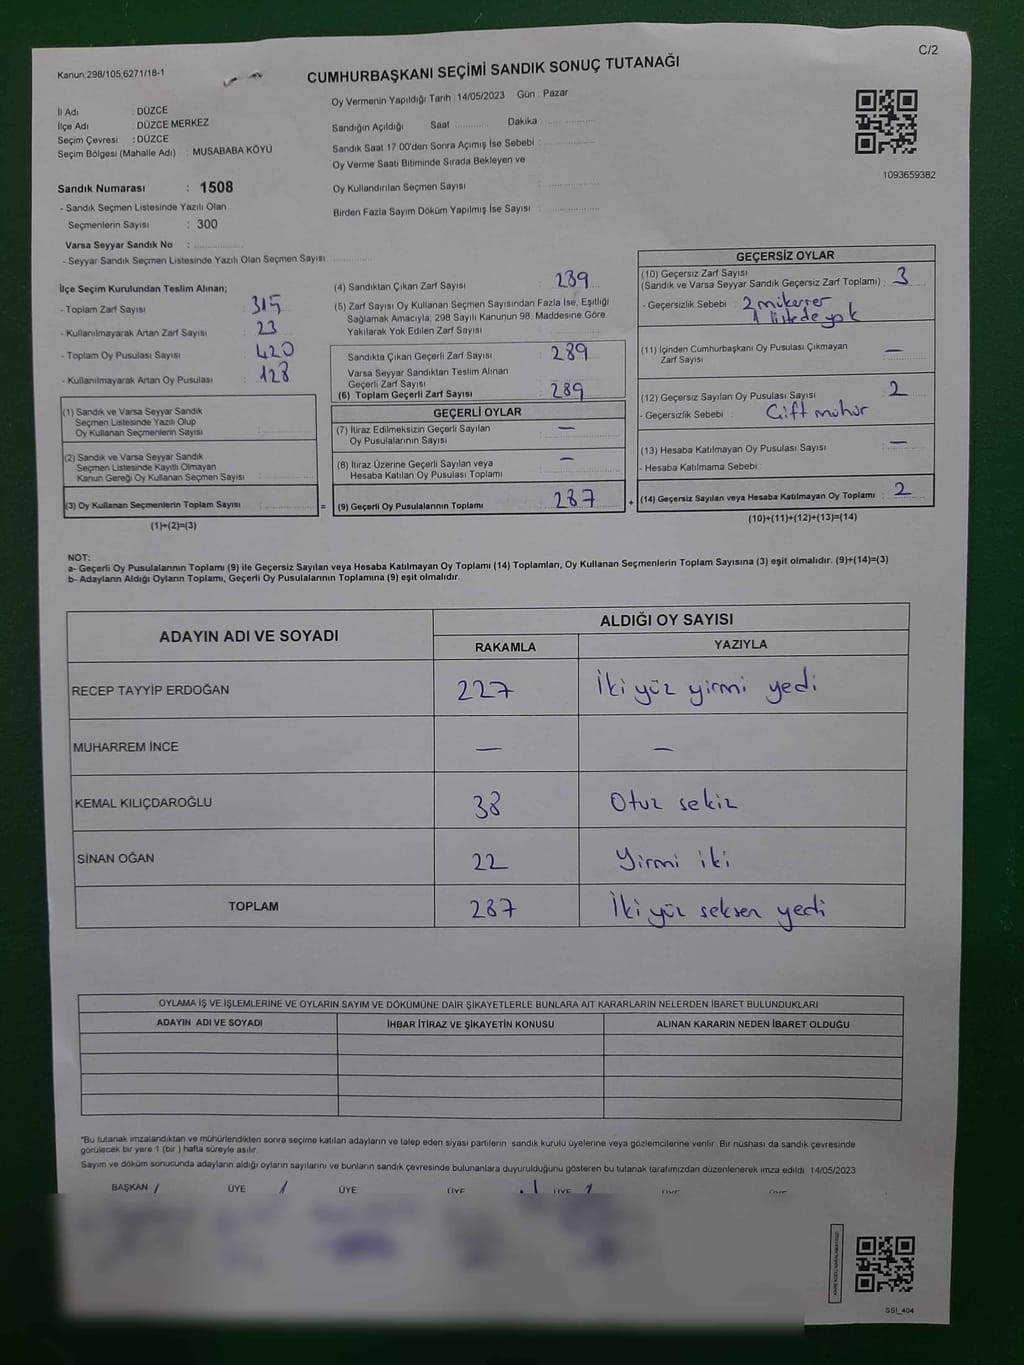 C/2
Kanun;298/105;6271/18-1
CUMHURBAŞKANI SEÇİMİ SANDIK SONUÇ TUTANAĞI
İl Adı : DÜZCE
İlçe Adı : DÜZCE MERKEZ
Seçim Çevresi : DÜZCE
Seçim Bölgesi (Mahalle Adı) : MUSABABA KÖYÜ
Sandık Numarası : 1508
- Sandık Seçmen Listesinde Yazılı Olan
Seçmenlerin Sayısı : 300
Varsa Seyyar Sandık No :
- Seyyar Sandık Seçmen Listesinde Yazılı Olan Seçmen Sayısı:
Oy Vermenin Yapıldığı Tarih :14/05/2023 Gün : Pazar
Sandığın Açıldığı Saat Dakika :
Sandık Saat 17.00'den Sonra Açımış İse Sebebi :
Oy Verme Saati Bitiminde Sırada Bekleyen ve
Oy Kullandırılan Seçmen Sayısı :
Birden Fazla Sayım Döküm Yapılmış İse Sayısı :
1093659382
İlçe Seçim Kurulundan Teslim Alınan;
- Toplam Zarf Sayısı : 315
- Kullanılmayarak Artan Zarf Sayısı : 23
- Toplam Oy Pusulası Sayısı : 420
- Kullanılmayarak Artan Oy Pusulası : 128
(1) Sandık ve Varsa Seyyar Sandık
Seçmen Listesinde Yazılı Olup
Oy Kullanan Seçmenlerin Sayısı :
(2) Sandık ve Varsa Seyyar Sandık
Seçmen Listesinde Kayıtlı Olmayan
Kanun Gereği Oy Kullanan Seçmen Sayısı :
(3) Oy Kullanan Seçmenlerin Toplam Sayısı :
(1)+(2)=(3)
(4) Sandıktan Çıkan Zarf Sayısı : 289
(5) Zarf Sayısı Oy Kullanan Seçmen Sayısından Fazla İse, Eşitliği
Sağlamak Amacıyla; 298 Sayılı Kanunun 98. Maddesine Göre
Yakılarak Yok Edilen Zarf Sayısı :
Sandıkta Çıkan Geçerli Zarf Sayısı : 289
Varsa Seyyar Sandıktan Teslim Alınan
Geçerli Zarf Sayısı :
(6) Toplam Geçerli Zarf Sayısı : 289
GEÇERLİ OYLAR
(7) İtiraz Edilmeksizin Geçerli Sayılan
Oy Pusulalarının Sayısı : —
(8) İtiraz Üzerine Geçerli Sayılan veya
Hesaba Katılan Oy Pusulası Toplamı : —
= (9) Geçerli Oy Pusulalarının Toplamı : 287
GEÇERSİZ OYLAR
(10) Geçersiz Zarf Sayısı
(Sandık ve Varsa Seyyar Sandık Geçersiz Zarf Toplamı) : 3
- Geçersizlik Sebebi : 2 mükerrer
1 listede yok
(11) İçinden Cumhurbaşkanı Oy Pusulası Çıkmayan
Zarf Sayısı : —
(12) Geçersiz Sayılan Oy Pusulası Sayısı : 2
- Geçersizlik Sebebi : Çift mühür
(13) Hesaba Katılmayan Oy Pusulası Sayısı : —
- Hesaba Katılmama Sebebi :
+ (14) Geçersiz Sayılan veya Hesaba Katılmayan Oy Toplamı : 2
(10)+(11)+(12)+(13)=(14)
NOT:
a- Geçerli Oy Pusulalarının Toplamı (9) ile Geçersiz Sayılan veya Hesaba Katılmayan Oy Toplamı (14) Toplamları, Oy Kullanan Seçmenlerin Toplam Sayısına (3) eşit olmalıdır. (9)+(14)=(3)
b- Adayların Aldığı Oyların Toplamı, Geçerli Oy Pusulalarının Toplamına (9) eşit olmalıdır.
ADAYIN ADI VE SOYADI ALDIĞI OY SAYISI
RAKAMLA YAZIYLA
RECEP TAYYİP ERDOĞAN 227 İki yüz yirmi yedi
MUHARREM İNCE — —
KEMAL KILIÇDAROĞLU 38 Otuz sekiz
SİNAN OĞAN 22 Yirmi iki
TOPLAM 287 İki yüz seksen yedi
OYLAMA İŞ VE İŞLEMLERİNE VE OYLARIN SAYIM VE DÖKÜMÜNE DAİR ŞİKAYETLERLE BUNLARA AİT KARARLARIN NELERDEN İBARET BULUNDUKLARI
ADAYIN ADI VE SOYADI İHBAR İTİRAZ VE ŞİKAYETİN KONUSU ALINAN KARARIN NEDEN İBARET OLDUĞU
*Bu tutanak imzalandıktan ve mühürlendikten sonra seçime katılan adayların ve talep eden siyasi partilerin sandık kurulu üyelerine veya gözlemcilerine verilir. Bir nüshası da sandık çevresinde
görülecek bir yere 1 (bir ) hafta süreyle asılır.
Sayım ve döküm sonucunda adayların aldığı oyların sayılarını ve bunların sandık çevresinde bulunanlara duyurulduğunu gösteren bu tutanak tarafımızdan düzenlenerek imza edildi. 14/05/2023
BAŞKAN ÜYE ÜYE ÜYE ÜYE ÜYE ÜYE
SSI_404